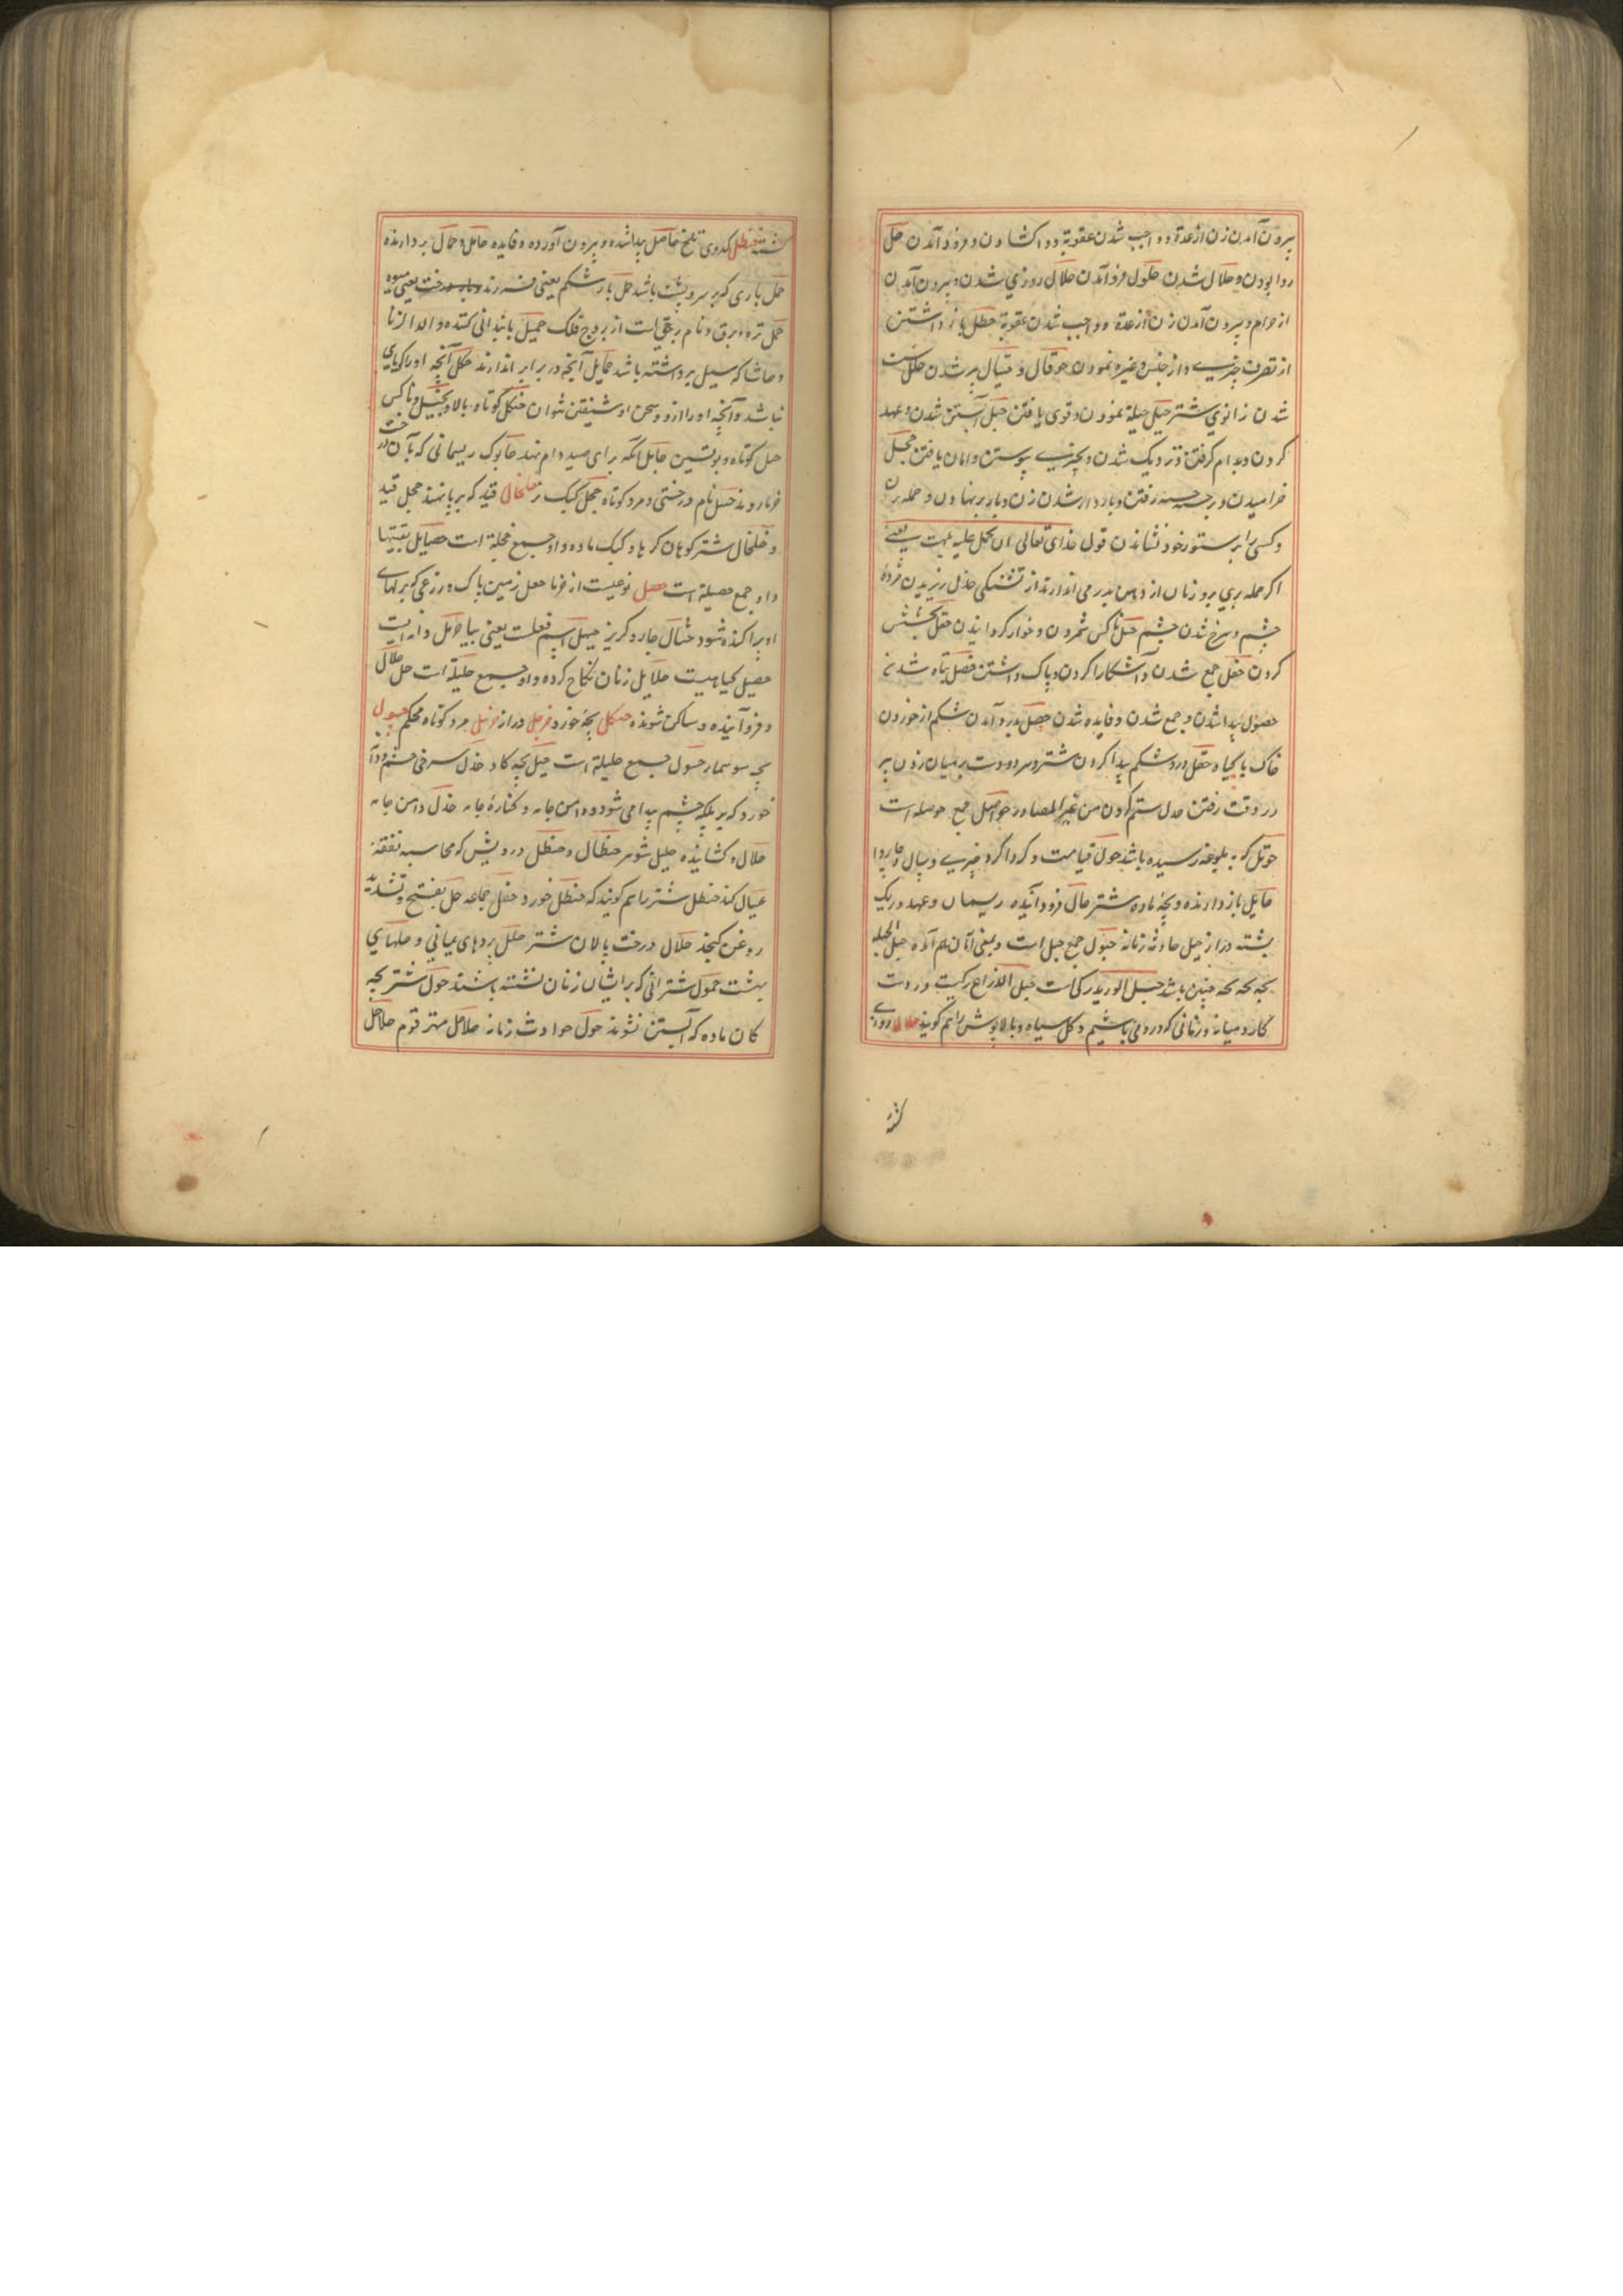 بیرون آمدن زن از عدة و واجب شدن عقوبة و واکشادن و فرود آمدن حل
روا بودن و حلال شدن حلول فرود آمدن حلال روزی شدن و بیرون آمدن
از حرام و بیرون آمدن زن از عدة و واجب شدن عقوبة حظل باز داشتن
از تصرف چیزی و از جنس و غیره نمودن حوقال و حیقال پیر شدن حلل سست
شدن زانوی شتر حیل حیلة نمودن و قوی یافتن حبل آبستن شدن و عهد
کردن و بدام گرفتن و نزدیک شدن و بچیزی پیوستن و امان یافتن حجل
خرامیدن و برجسته جسته رفتن و باردار شدن زن و بار بر نهادن و حمله بردن
و کسی را بر ستور خود نشاندن قول خدای تعالی ان تحمل علیه یلهث یعنی
اگر حمله بری برو زبان از دهن بدر می اندازند از تشنگی حذل ریزیدن مژهٔ
چشم و سرخ شدن چشم حسل ناکس شمردن و خوار گردانیدن حفل بخشش
کردن حفل جمع شدن و آشکارا کردن و پاک داشتن حصل تباه شدن
حصول پیدا شدن و جمع شدن و فایده شدن حصل بدرد آمدن شکم از خوردن
خاک با گیاه حقل درد شکم پیدا کردن شتر و هر دو دست بر میان زدن پیر
در وقت رفتن حدل ستم کردن من غیر المصادر حواصل جمع حوصله است
حوتل که به بلوغه رسیده باشد حول قیامت و گرداگرد چیزی و سال و چاروا
حایل باز دارنده و بچهٔ ماده شتر حال فرود آینده ریسمان و عهد و ریک
پشته دراز حبل حادثه زمانه حبول جمع حبل است و بمعنی آنان هم آمده حبل الحبله
بچه بچه جنین باشد حبل الورید رگی است حبل الذراع رگیست در دست
کار و میانه و زنانی که در وی باشیم و کل سیاه و بالاپوش را هم گویند حلال روزی
کشته
کشته حنظل کدوی تلخ حاصل پیدا شده و بیرون آورده و فایده حامل و حمال بردارنده
حمل باری که بر سر و پشت باشد حمل بار شکم یعنی فرزند و بار درخت یعنی میوه
حمل بره و برق و نام برجی است از بروج فلک حمیل پایندانی کننده و ولد الزنا
و خاشاک سیل برداشته باشد حمایل آنچه در برابر اندازند حکل آنچه او را گویایی
نباشد و آنچه او را از وی سخن او شنیدن نتوان حنکل کوتاه بالا و بخیل و ناکس
حبل کوتاه و پوستین حابل آنکه برای صید دام نهد حابول ریسمانی که بآن بر درخت
خرما روند حسل نام درختی و مرد کوتاه حجل کبک نر خلخال قید که بر پا نهند حجل قید
و خلخال شتر کوهان گر یا و کبک ماده و او جمع حجلة است حصایل بقیتها
و او جمع حصیلة است حصل نوعیست از خرما حقل زمین پاک و زرعی که برگهای
او پراکنده شود حثال جار و گریز حیهل اسم فعلست یعنی بیا حرمل دانه ایست
حصیل گیاهیست حلایل زنان نکاح کرده و او جمع حلیلة است حل حلال
و فرود آینده و ساکن شونده حسکل بچهٔ خورد حرجل دراز حزنبل مرد کوتاه محکم حسول
بچه سوسمار حسول جمع حلیلة است حسیل بچه گاو حذل سرخی چشم و دانه
خورد که بر پلک چشم پیدا می شود و دامن جامه و کنارهٔ جامه حذل دامن جامه
حلال و کشاینده حلیل شوهر حنظال و حنظل درویش که محاسبه نفقه
عیال کند حنظل شتر را هم گویند که حنظل خورد حفل جماعه حل بفتح و تشدید
روغن کنجد حلال درخت پالان شتر حلل بردهای یمانی و حلهای
بهشت حمول شترانی که بر ایشان زنان نشسته باشند حول شتر بچه
کان ماده که آبستن نشوند حول حوادث زمانه حلاحل مهتر قوم حلاحل